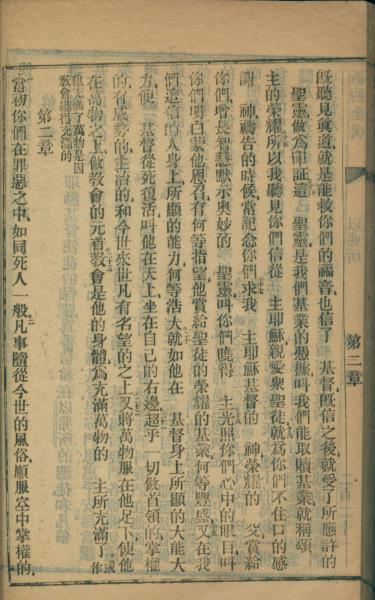 既聽見眞道就是能救你們的福音也信了　基督旣信之後就受了所應許的
聖靈做為印証這　聖靈是我們基業的憑據叫我們能取贖基業就稱頌
主的榮耀所以我聽見你們信從　主耶穌親愛衆聖徒就為你們不住口的感
謝　神禱告的時候常記念你們求我　主耶穌基督的　神榮耀的　父賞給
你們增長智慧默示奧妙的　聖靈叫你們曉得　主光照你們心中的眼目叫
你們明白蒙他恩召有何等指望他賞給聖徒的榮耀的基業何等豐盛又在我
們這信的人身上所顯的能力何等浩大就如他在　基督身上所顯的大能大
力使　基督從死復活叫他在天上坐在自己的右邊超乎一切做首領的掌權
的有威勢的主治的和今世來世凡有名望的之上又將萬物服在他足下使他
在萬物之上做教會的元首教會是他的身體為充滿萬物的　主所充滿了或作
他充滿了萬物是因
教會纔得充滿的
第二章
當初你們在罪惡之中如同死人一般凡事隨從今世的風俗順服空中掌權的
第二章